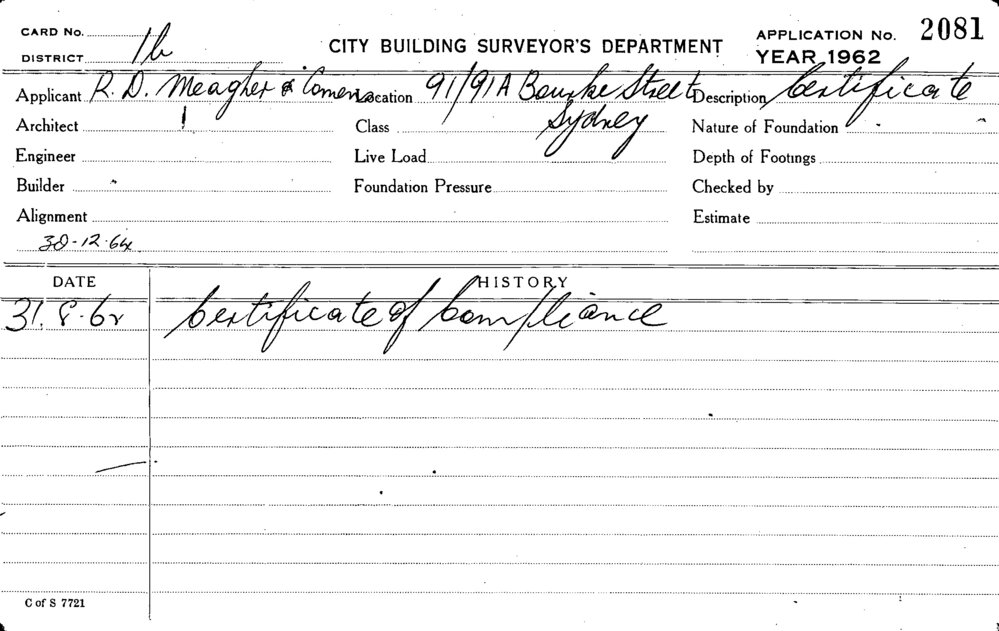 CARD No.
DISTRICT 1b
CITY BUILDING SURVEYOR'S DEPARTMENT
APPLICATION No. 2081
YEAR 1962
Applicant R. D. Meagher & Location 91/91A Bourke Street Description Certificate
Sydney
Architect Class Nature of Foundation
Engineer Live Load Depth of Footings
Builder Foundation Pressure Checked by
Alignment Estimate
30-12-64
DATE HISTORY
31.8.62 Certificate of Compliance
C of S 7721